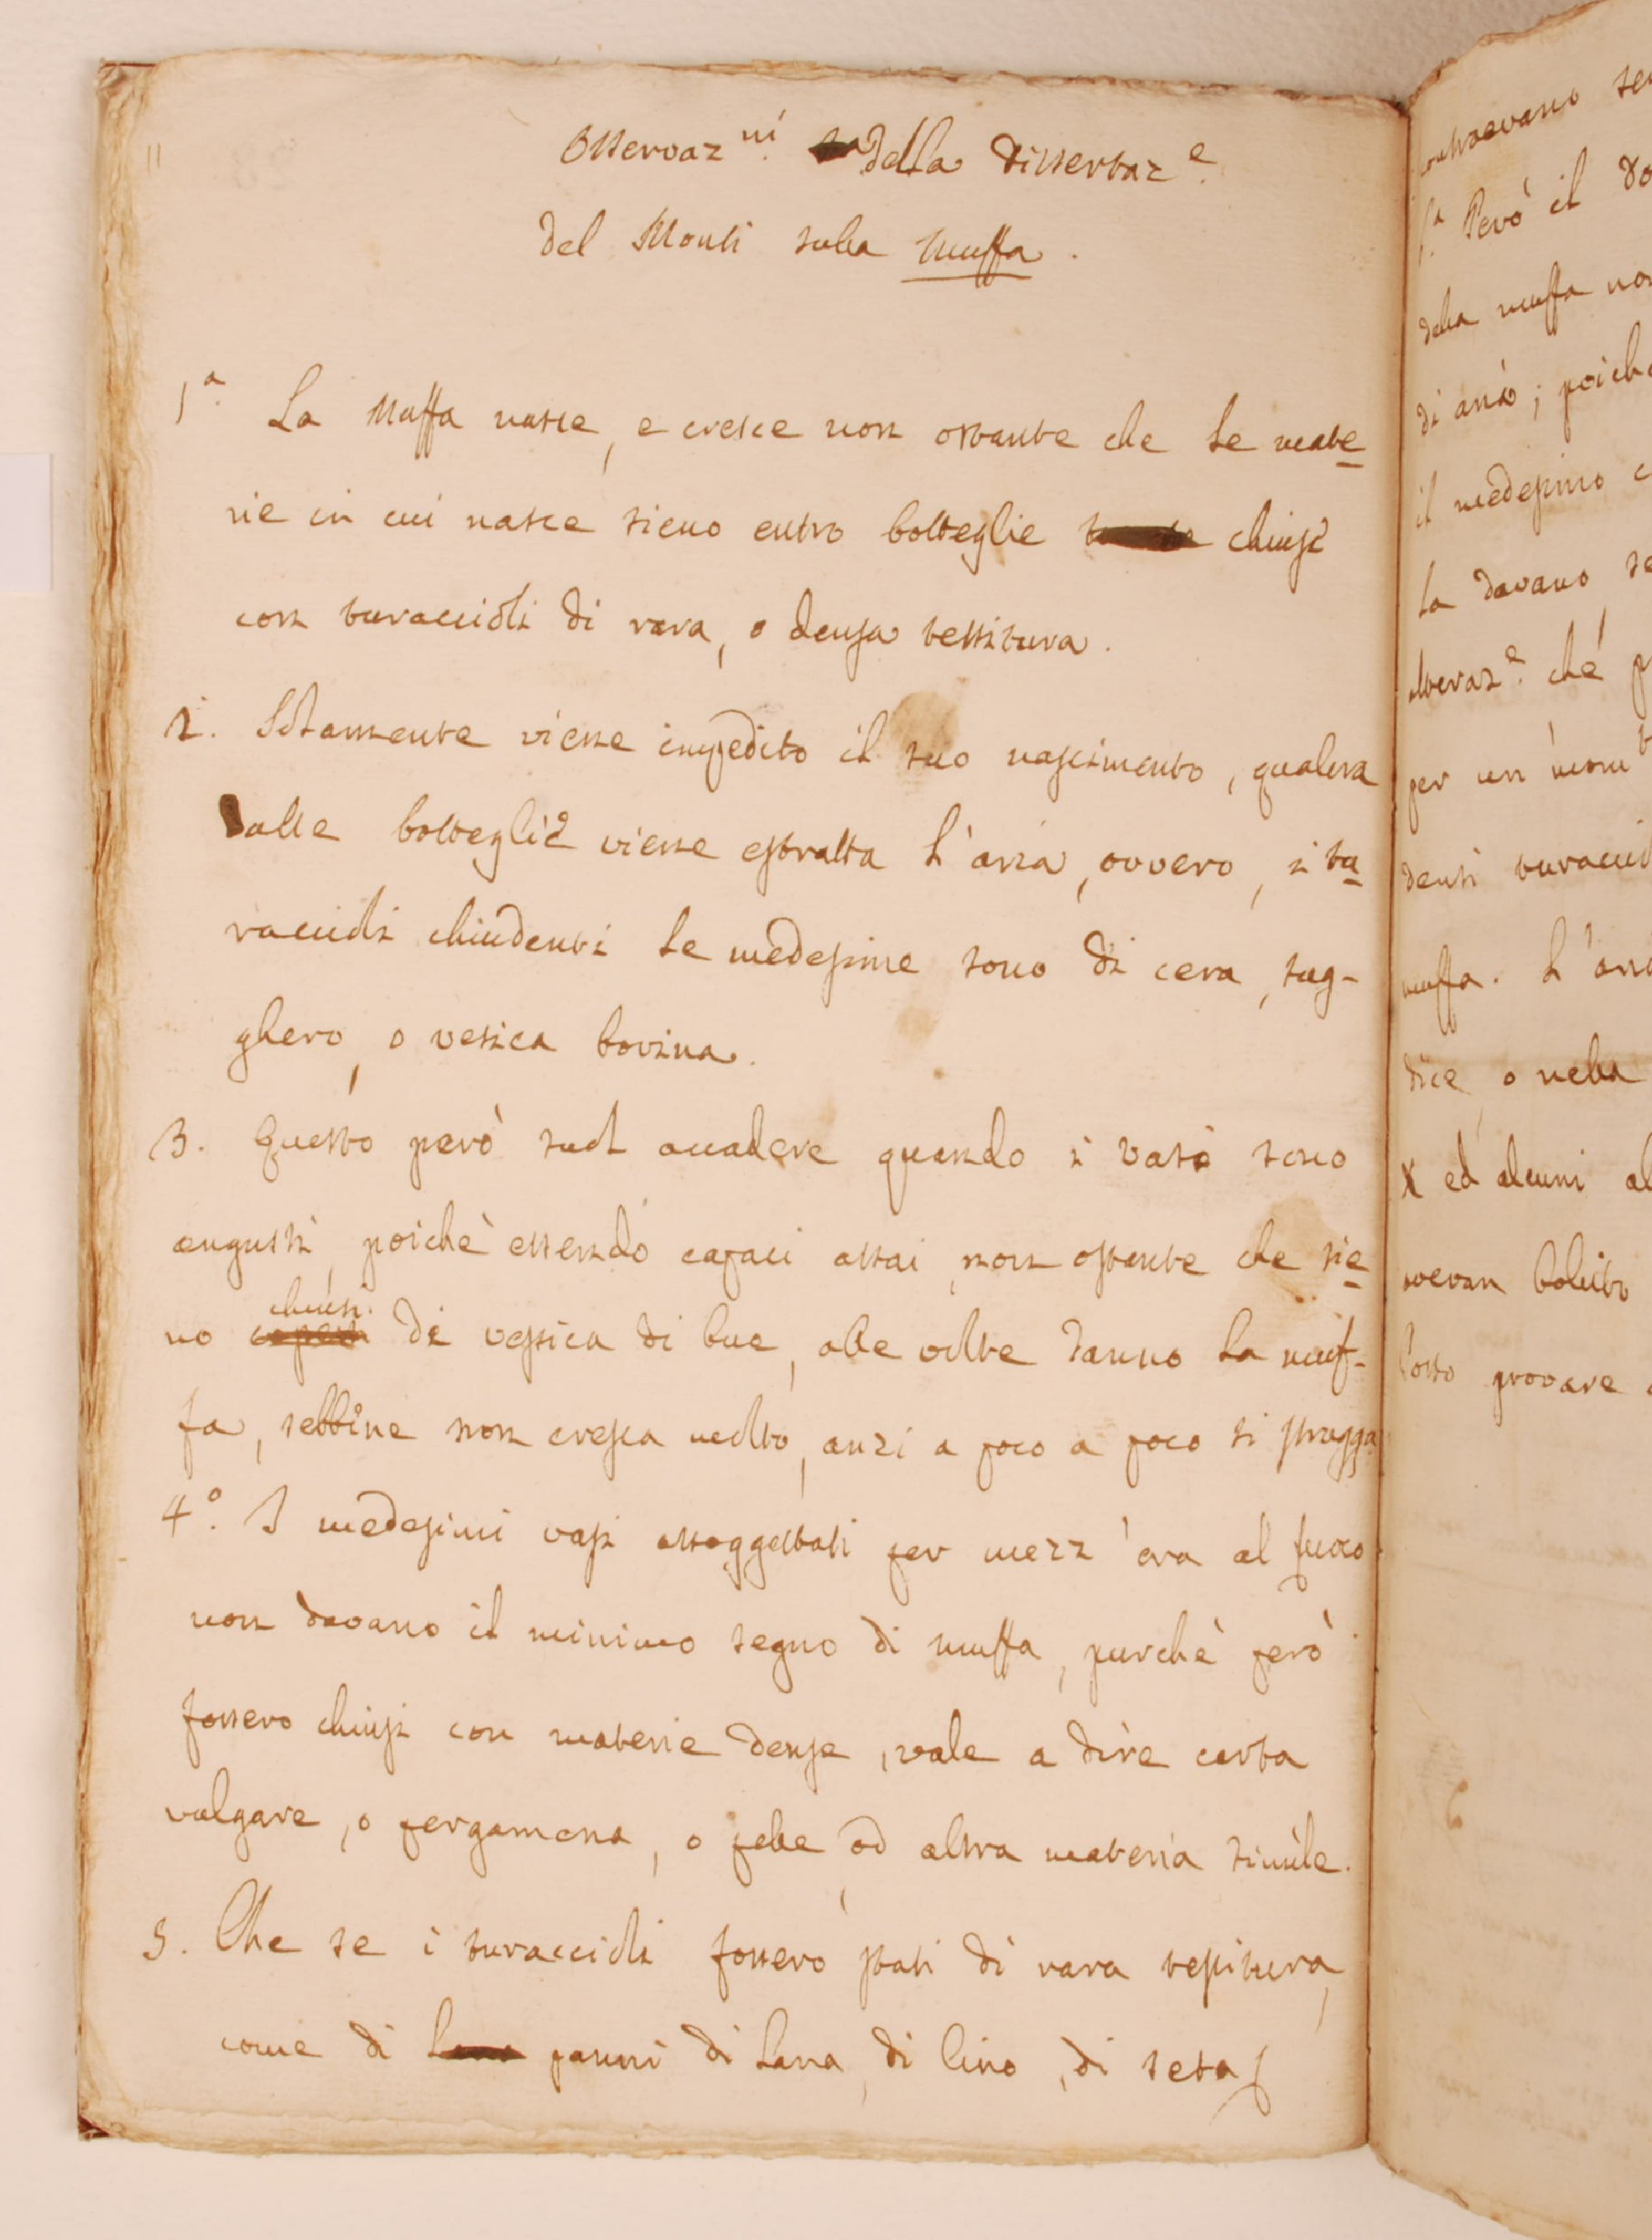 Osservaz.ni della Dissertaz.e
del Monti sulla Muffa.
1.a La Muffa nasce, e cresce non ostante che le mate
rie in cui nasce sieno entro botteglie chiuse
con turaccioli di rara, o densa tessitura.
2. Solamente viene impedito il suo nascimento, qualora
dalle botteglie viene estratta l'aria, ovvero, i tu
raccioli chiudenti le medesime sono di cera, sug-
ghero, o vesica bovina.
3. Questo però suol accadere quando i vasi sono
angusti, poichè essendo capaci assai, non ostante che sie
no chiusi di vessica di bue, alle volte danno la muf-
fa, sebbine non cresca molto, anzi a poco a poco si strugga
4.o I medesimi vasi assoggettati per mezz'ora al fuoco
non davano il minimo segno di muffa, purchè però
fossero chiusi con materie dense, vale a dire carta
vulgare, o pergamena, o pelle, od altra materia simile.
5. Che se i turaccioli fossero stati di rara tessitura,
come di panni di lana, di lino, di seta
sen
1.a Però il
della muffa non
di aria; poichè
il medesimo
la davano, se
alteraz.e che
per un
denti turaccioli
muffa. L'aria
dice, o nella
X ed alcuni al
bollito
provare